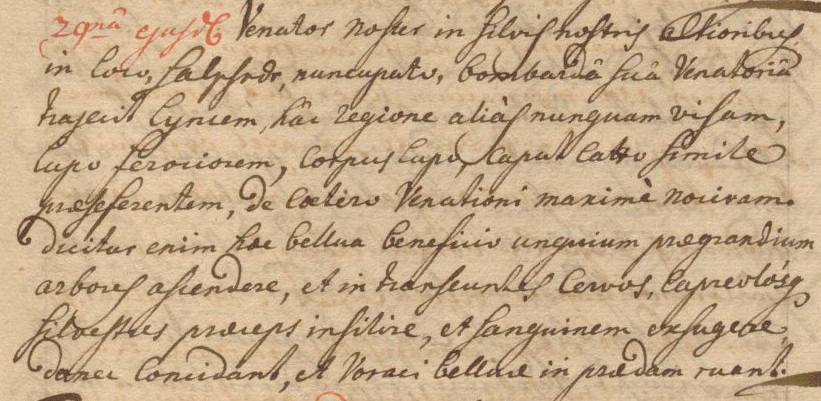 29nâ ejusd. Venator noster in silvis nostris altioribus,
in loco, Salpsrdr, nuncupato, bombardâ suâ Venatoriâ
trajecit Lyncem, hâc regione aliàs nunquam visam,
lupo ferociorem, Corpus lupo, Caput Catto simile
præseferentem, de Coetero Venationi maximè nocivam.
dicitur enim hæc bellua beneficio unguium prægrandium
arbores ascendere, et in transeuntes Cervos, Capreolosq
silvestres præceps insilire, et sanguinem exsugere
donec Concidant, et Voraci belluæ in prædam ruant.